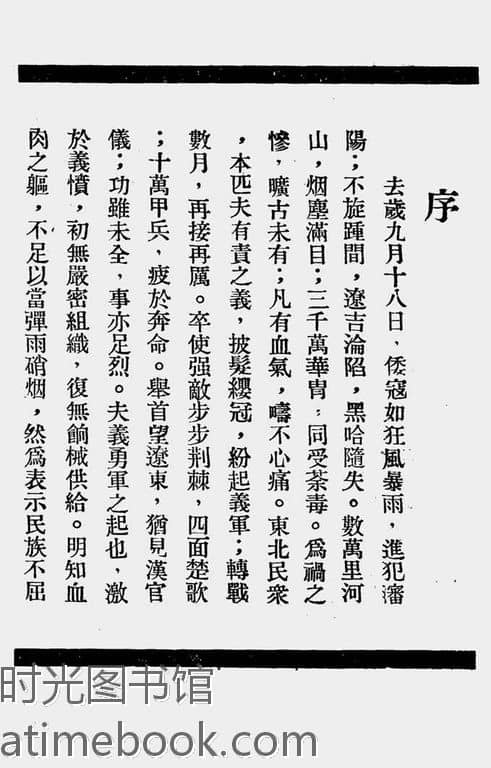 序
去歲九月十八日、倭寇如狂風暴雨，進犯瀋
陽；不旋踵間，遼吉淪陷，黑哈隨失。數萬里河
山，烟塵滿目；三千萬華胄，同受荼毒。爲禍之
慘，曠古未有；凡有血氣，疇不心痛。東北民衆
，本匹夫有責之義，披髮纓冠，紛起義軍；轉戰
數月，再接再厲。卒使强敵步步荆棘，四面楚歌
；十萬甲兵，疲於奔命。舉首望遼東，猶見漢官
儀；功雖未全，事亦足烈。夫義勇軍之起也，激
於義憤，初無嚴密組織，復無餉械供給。明知血
肉之軀，不足以當彈雨硝烟，然爲表示民族不屈
时光图书馆
atimebook.com